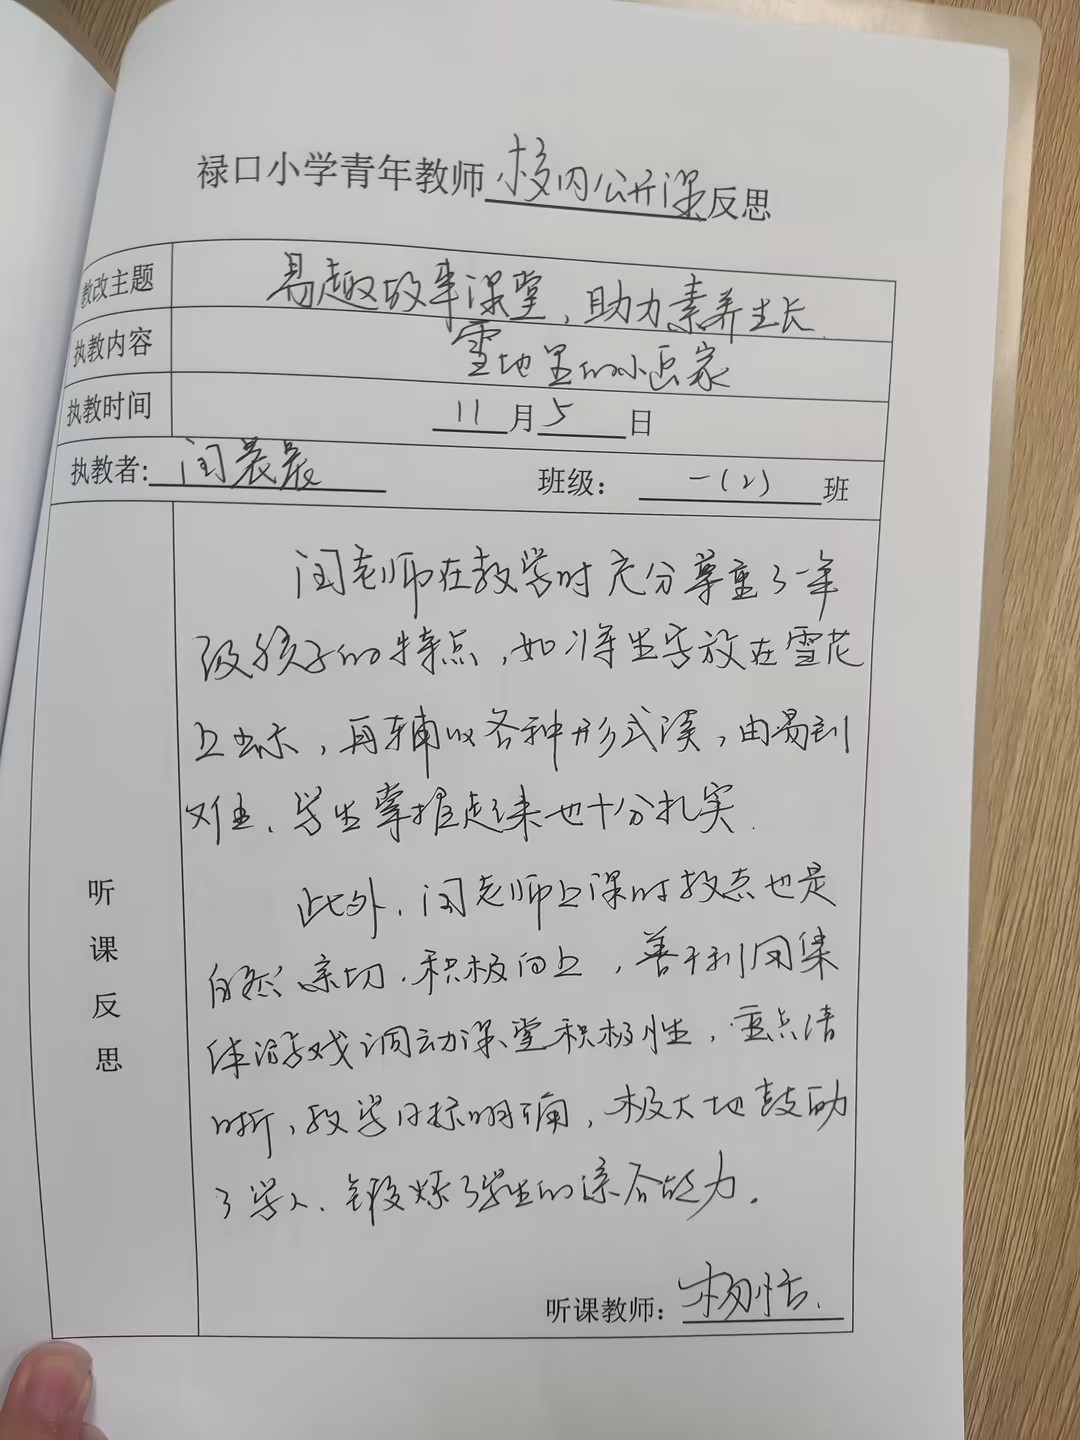 禄口小学青年教师校内公开课反思
教改主题 易趣故事课堂，助力素养生长
执教内容 雪地里的小画家
执教时间 11月5日
执教者：闫晨晨 班级：一(2)班
闫老师在教学时充分尊重了一年
级孩子的特点，如将生字放在雪花
上出示，再辅以各种形式读，由易到
难、学生掌握起来也十分扎实.
此外，闫老师上课时教态也是
自然亲切，积极向上，善于利用集
体游戏调动课堂积极性，重点清
晰，教学目标明确，极大地鼓励
了学人、锻炼了学生的综合能力。
听课反思
听课教师：杨恬.